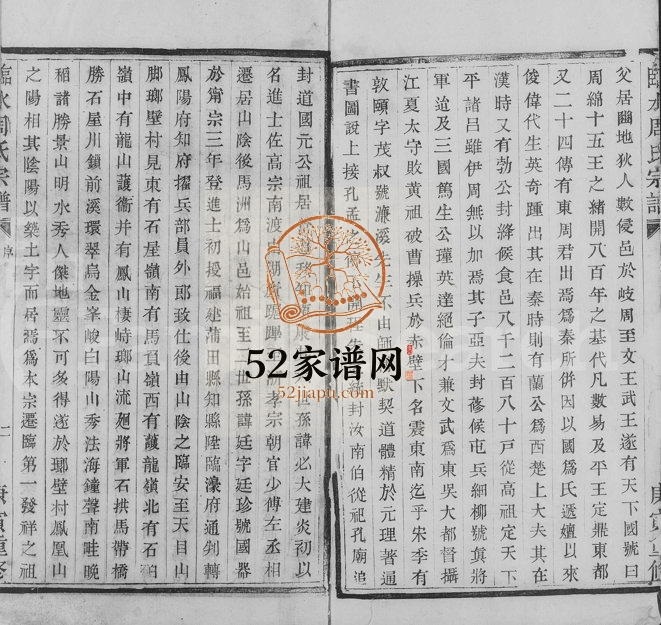 父居豳地狄人數侵邑於岐周至文王武王遂有天下國號曰
周綿十五王之緒開八百年之基代凡數易及平王定鼎東都
又二十四傳有東周君出焉爲秦所併因以國爲氏遞嬗以來
俊偉代生英奇踵出其在秦時則有蘭公爲西楚上大夫其在
漢時又有勃公封絳候食邑八千二百八十戸從高祖定天下
平諸呂雖伊周無以加焉其子亞夫封蓚候屯兵細柳號真將
軍迨及三國篤生公瑾英達絕倫才兼文武爲東吳大都督攝
江夏太守敗黃祖破曹操兵於赤壁下名震東南迄乎宋季有
敦頤字茂叔號濂溪先生不由師 默契道體精於元理著通
書圖說上接孔孟 開 封汝南伯從祀孔廟追
封道國元公祖居 孫諱必大建炎初以
名進士佐高宗南渡 孝宗朝官少傅左丞相
遷居山陰後馬洲爲山邑始祖至 世孫諱廷字廷珍號國器
於甯宗三年登進士初授福建莆田縣知縣陞臨濠府通判轉
鳳陽府知府擢兵部員外郎致仕後由山陰之臨安至天目山
脚瑯壁村見東有石屋嶺南有馬負嶺西有護龍嶺北有石
嶺中有龍山護衛并有鳳山棲峙瑯山流廻將軍石拱馬帶橋
勝石屋川鎖前溪環翠烏金峯峻白陽山秀法海鐘聲南畦晚
稻諸勝景山明水秀人傑地靈不可多得遂於瑯壁村鳳凰山
之陽相其陰陽以築土字而居焉爲本宗遷臨第一發祥之祖
臨水周氏宗譜
序
二
庚寅重修
臨水周氏宗譜
庚寅重修
52家谱网
52jiapu.com